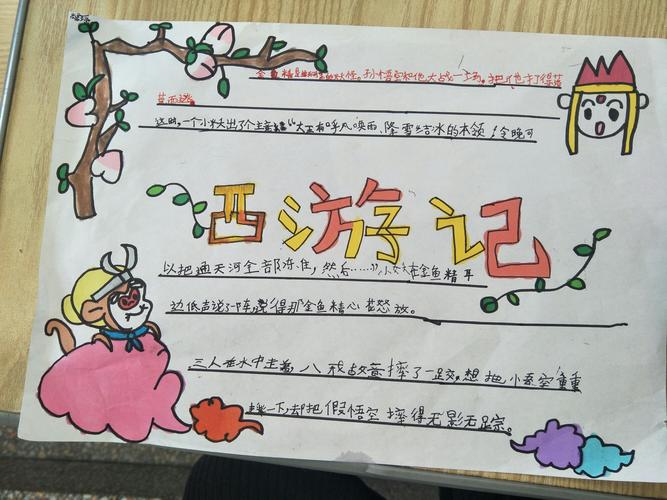 金鱼精是通天河里的妖怪。孙悟空和他大战一场,把他打得落
荒而逃。
这时,一个小妖出了个主意“大王有呼风唤雨、降雪结冰的本领,今晚可
西游记
以把通天河全部冻住,然后……”小妖在金鱼精耳
边低声说了一阵,说得那金鱼精心花怒放。
三人在水中走着,八戒故意摔了一跤,想把小悟空重
一下,去把假悟空摔得无影无踪。